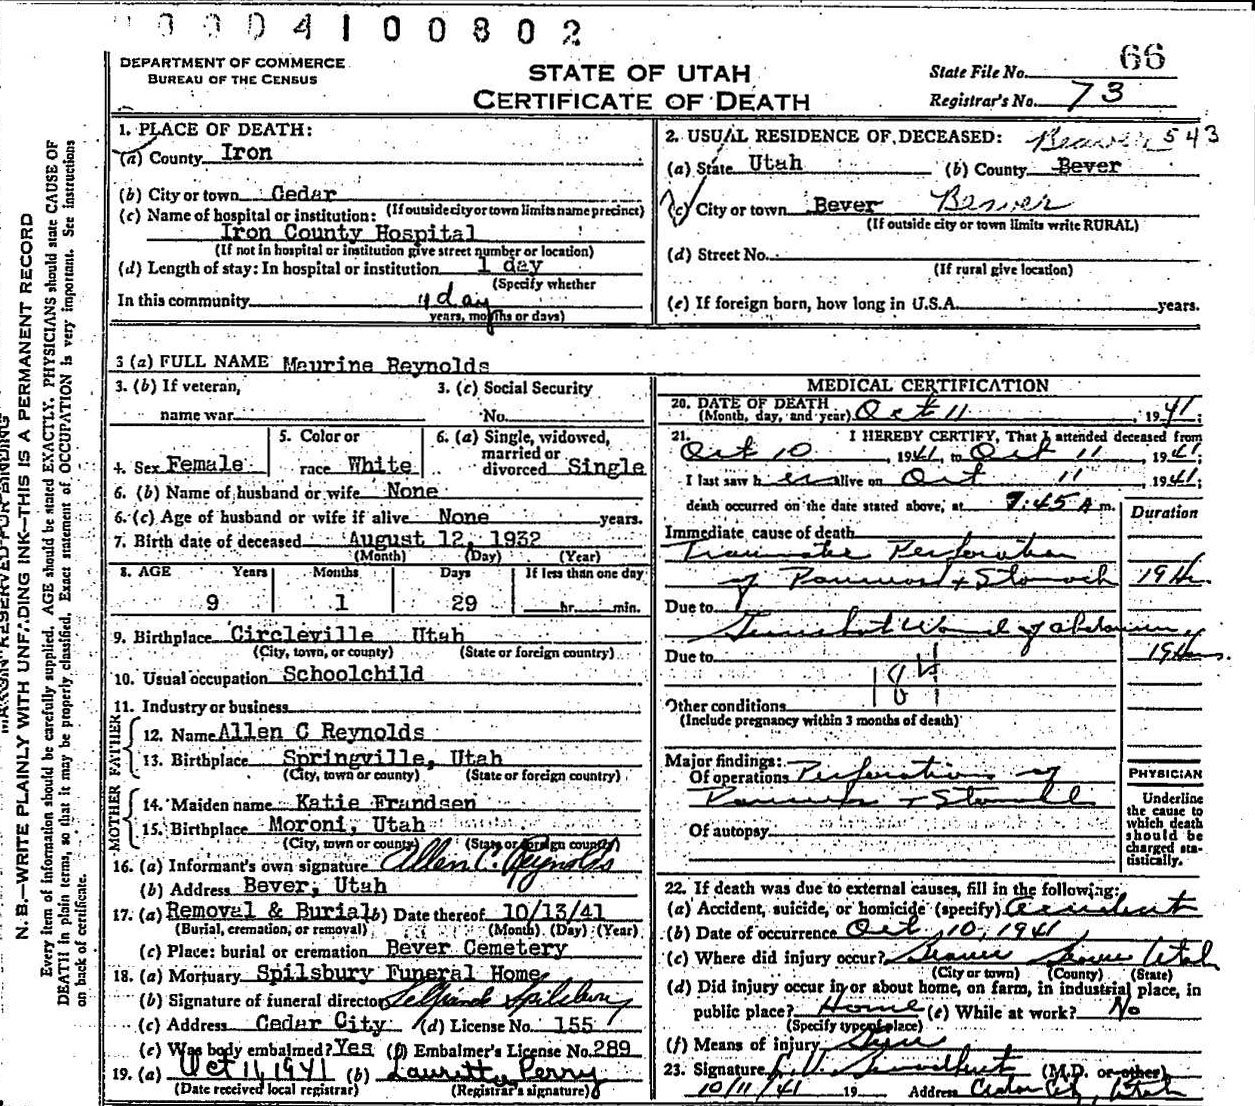 0004100802
66
DEPARTMENT OF COMMERCE
BUREAU OF THE CENSUS
STATE OF UTAH
CERTIFICATE OF DEATH
State File No.
Registrar's No. 73
N. B.—WRITE PLAINLY WITH UNFADING INK—THIS IS A PERMANENT RECORD
Every item of information should be carefully supplied. AGE should be stated EXACTLY. PHYSICIANS should state CAUSE OF
DEATH in plain terms, so that it may be properly classified. Exact statement of OCCUPATION is very important. See instructions
on back of certificate.
1. PLACE OF DEATH:
(a) County Iron
(b) City or town Cedar
(If outside city or town limits name precinct)
(c) Name of hospital or institution:
Iron County Hospital
(If not in hospital or institution give street number or location)
(d) Length of stay: In hospital or institution 1 day
(Specify whether
In this community 1 day
years, months or days)
2. USUAL RESIDENCE OF DECEASED: Beaver 543
(a) State Utah (b) County Bever
(c) City or town Bever Beaver
(If outside city or town limits write RURAL)
(d) Street No.
(If rural give location)
(e) If foreign born, how long in U.S.A. years.
3 (a) FULL NAME Maurine Reynolds
3. (b) If veteran,
name war
3. (c) Social Security
No.
4. Sex Female
5. Color or
race White
6. (a) Single, widowed,
married or
divorced Single
6. (b) Name of husband or wife None
6. (c) Age of husband or wife if alive None years.
7. Birth date of deceased August 12, 1932
(Month) (Day) (Year)
8. AGE Years Months Days If less than one day
9 1 29 hr. min.
9. Birthplace Circleville Utah
(City, town, or county) (State or foreign country)
10. Usual occupation Schoolchild
11. Industry or business
FATHER
12. Name Allen C Reynolds
13. Birthplace Springville, Utah
(City, town or county) (State or foreign country)
MOTHER
14. Maiden name Katie Frandsen
15. Birthplace Moroni, Utah
(City, town or county) (State or foreign country)
16. (a) Informant's own signature Allen C. Reynolds
(b) Address Bever, Utah
17. (a) Removal & Burial (b) Date thereof 10/13/41
(Burial, cremation, or removal) (Month) (Day) (Year)
(c) Place: burial or cremation Bever Cemetery
18. (a) Mortuary Spilsbury Funeral Home
(b) Signature of funeral director Spilsbury
(c) Address Cedar City (d) License No. 155
(e) Was body embalmed? Yes (f) Embalmer's License No. 289
19. (a) Oct 11, 1941 (b) Lauretta Perry
(Date received local registrar) (Registrar's signature)
MEDICAL CERTIFICATION
20. DATE OF DEATH
(Month, day, and year) Oct 11, 1941;
21. I HEREBY CERTIFY, That I attended deceased from
Oct 10, 1941, to Oct 11, 1941;
I last saw her alive on Oct 11, 1941;
death occurred on the date stated above, at 7:45 A m.
Duration
Immediate cause of death
Traumatic Perforation
of & Stomach 19 Hr.
Due to
Gunshot Wound of abdomen
Due to 19 Hours.
184
Other conditions
(Include pregnancy within 3 months of death)
Major findings:
Of operations Perforation of
& Stomach
Of autopsy
PHYSICIAN
Underline
the cause to
which death
should be
charged sta-
tistically.
22. If death was due to external causes, fill in the following:
(a) Accident, suicide, or homicide (specify) Accident
(b) Date of occurrence Oct. 10, 1941
(c) Where did injury occur? Beaver Beaver Utah
(City or town) (County) (State)
(d) Did injury occur in or about home, on farm, in industrial place, in
public place? Home (e) While at work? No
(Specify type of place)
(f) Means of injury
23. Signature (M.D. or other)
10/11/41 19 Address Cedar City, Utah